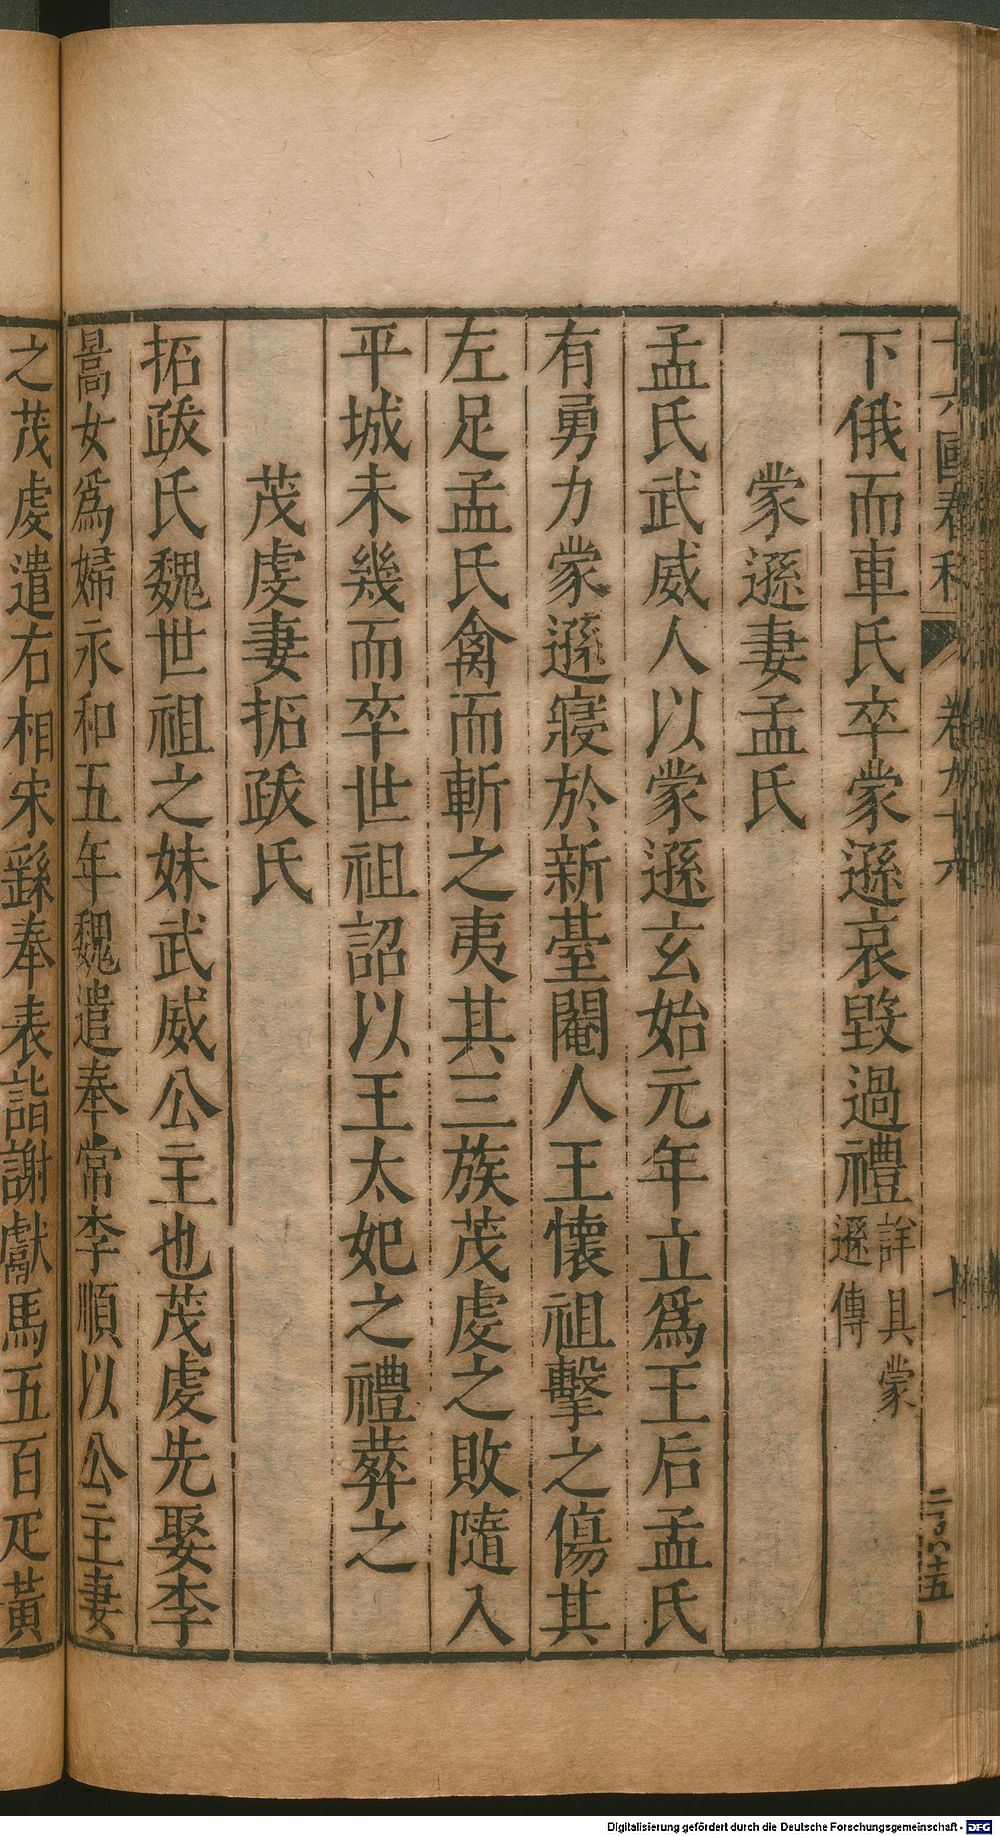 十六國春秋 卷九十六 十
下俄而車氏卒蒙遜哀毀過禮詳具蒙遜傳
蒙遜妻孟氏
孟氏武威人以蒙遜玄始元年立爲王后孟氏
有勇力蒙遜寢於新臺閹人王懷祖擊之傷其
左足孟氏禽而斬之夷其三族茂虔之敗隨入
平城未幾而卒世祖詔以王太妃之禮葬之
茂虔妻拓跋氏
拓跋氏魏世祖之妹武威公主也茂虔先娶李
暠女爲婦永和五年魏遣奉常李順以公主妻
之茂虔遣右相宋繇奉表詣謝獻馬五百疋黃
Digitalisierung gefördert durch die Deutsche Forschungsgemeinschaft - DFG